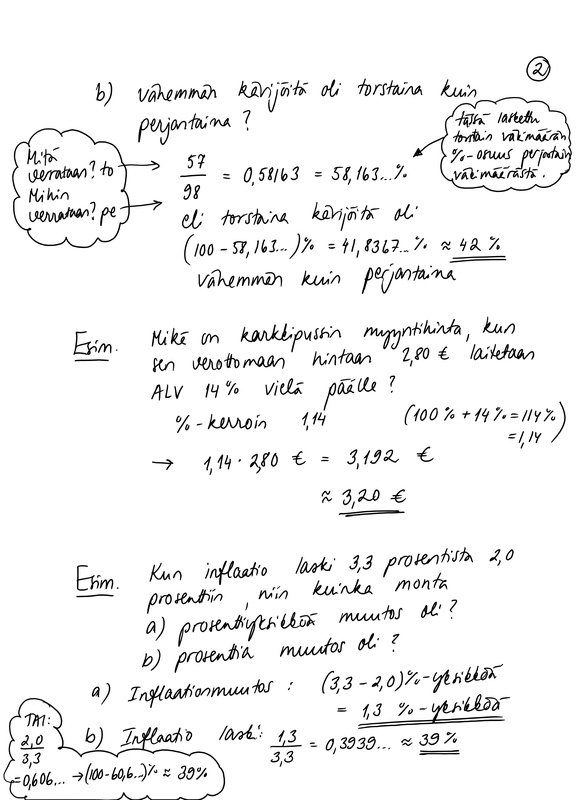 2
b) vähemmän kävijöitä oli torstaina kuin
perjantaina?
Tässä laskettu
torstain väkimäärän
%-osuus perjantain
väkimäärästä.
Mitä
verrataan? to
Mihin
verrataan? pe
57/98 = 0,58163 = 58,163...%
eli torstaina kävijöitä oli
(100 - 58,163...)% = 41,8367...% ≈ 42 %
vähemmän kuin perjantaina
Esim. Mikä on karkkipussin myyntihinta, kun
sen verottomaan hintaan 2,80 € laitetaan
ALV 14% vielä päälle?
%-kerroin 1,14 (100 % + 14% = 114%
= 1,14)
→ 1,14 · 2,80 € = 3,192 €
≈ 3,20 €
Esim. Kun inflaatio laski 3,3 prosentista 2,0
prosenttiin, niin kuinka monta
a) prosenttiyksikköä muutos oli?
b) prosenttia muutos oli?
a) Inflaationmuutos: (3,3 - 2,0)%-yksikköä
= 1,3 %-yksikköä
b) Inflaatio laski: 1,3/3,3 = 0,3939... ≈ 39%
TAI:
2,0/3,3
= 0,606... → (100-60,6...)% ≈ 39%